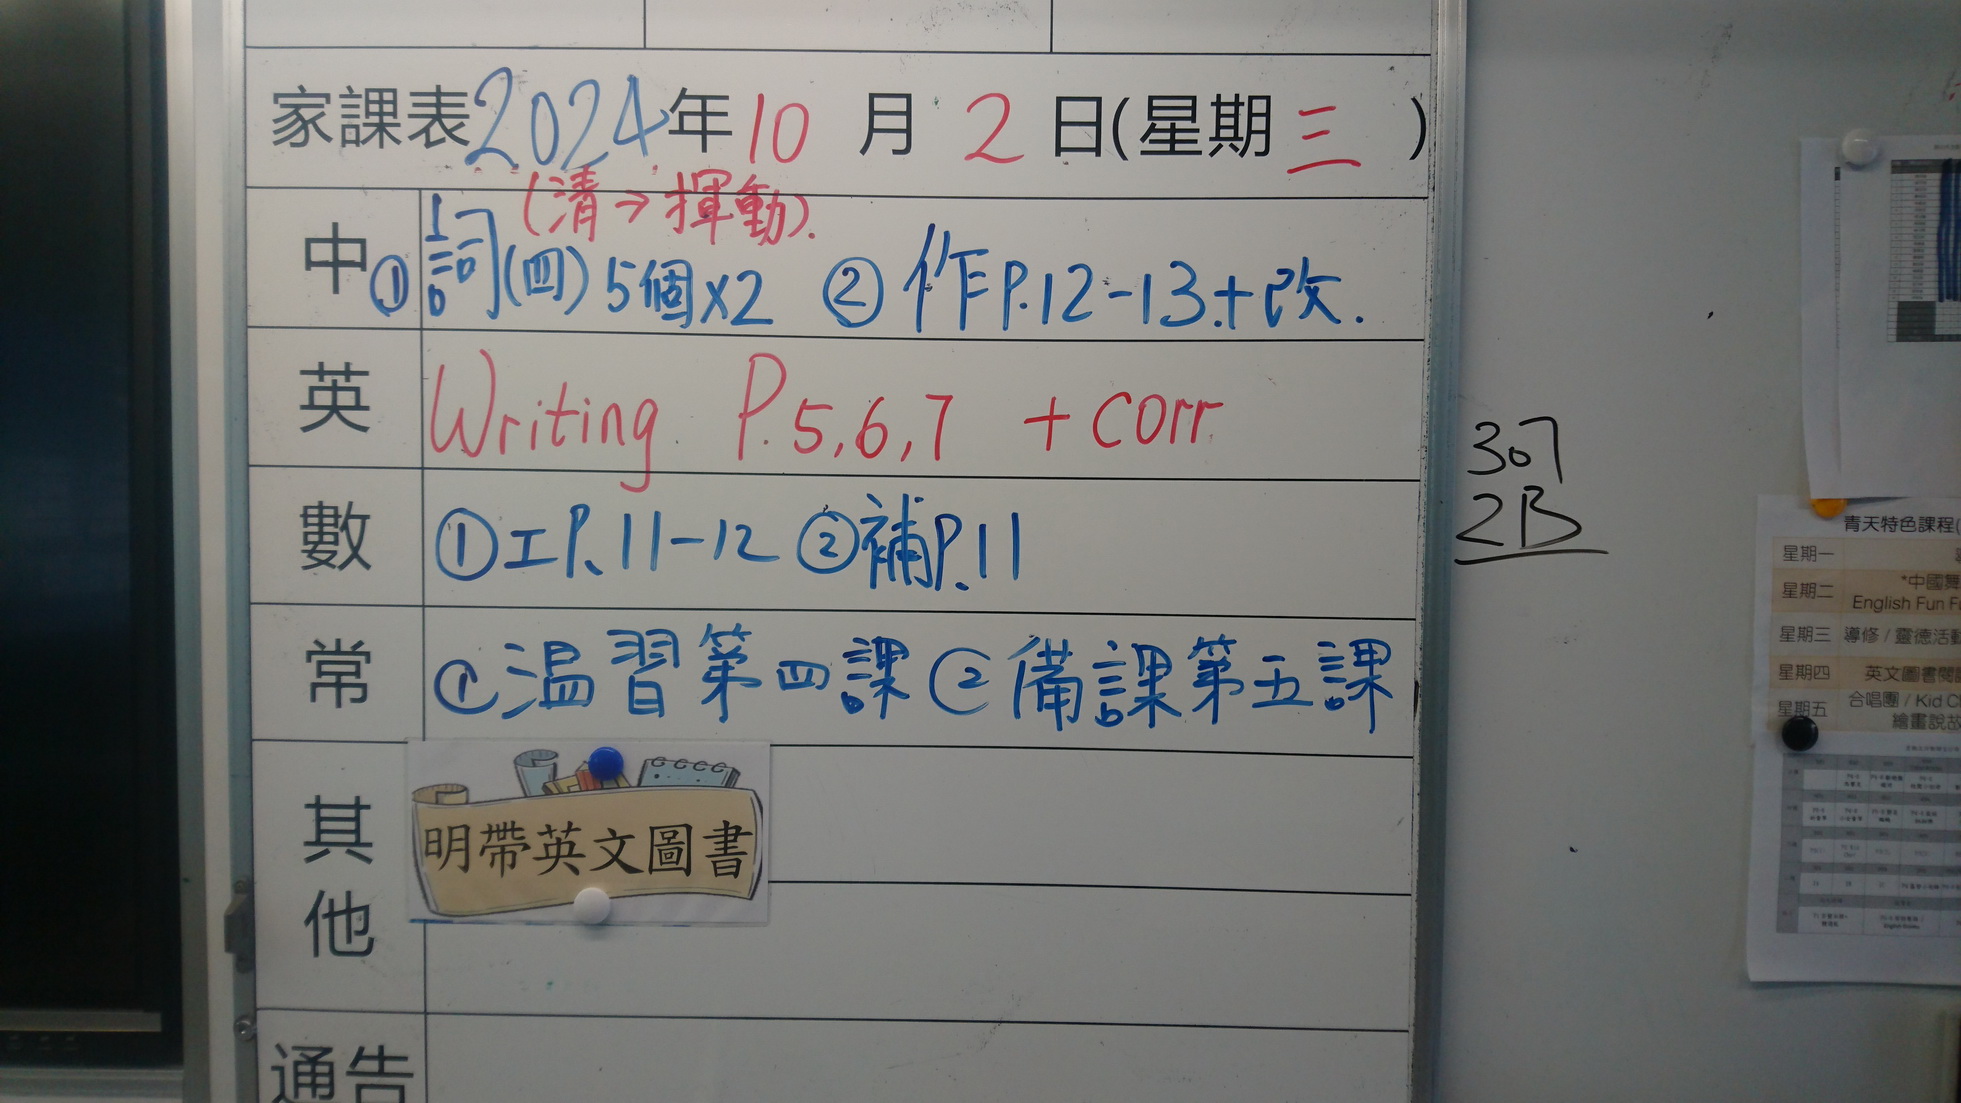 家課表2024年10月2日(星期三)
(清→揮動).
中①詞(四)5個x2 ②作P.12-13.+改.
英 Writing P.5,6,7 +corr
數 ①工P.11-12 ②補P.11
常 ①温習第四課②備課第五課
其他
明帶英文圖書
通告
307
2B
青天特色課程(
星期一
星期二 *中國舞
English Fun F
星期三 導修 / 靈德活動
星期四 英文圖書閱
星期五 合唱團 / Kid C
繪畫說故